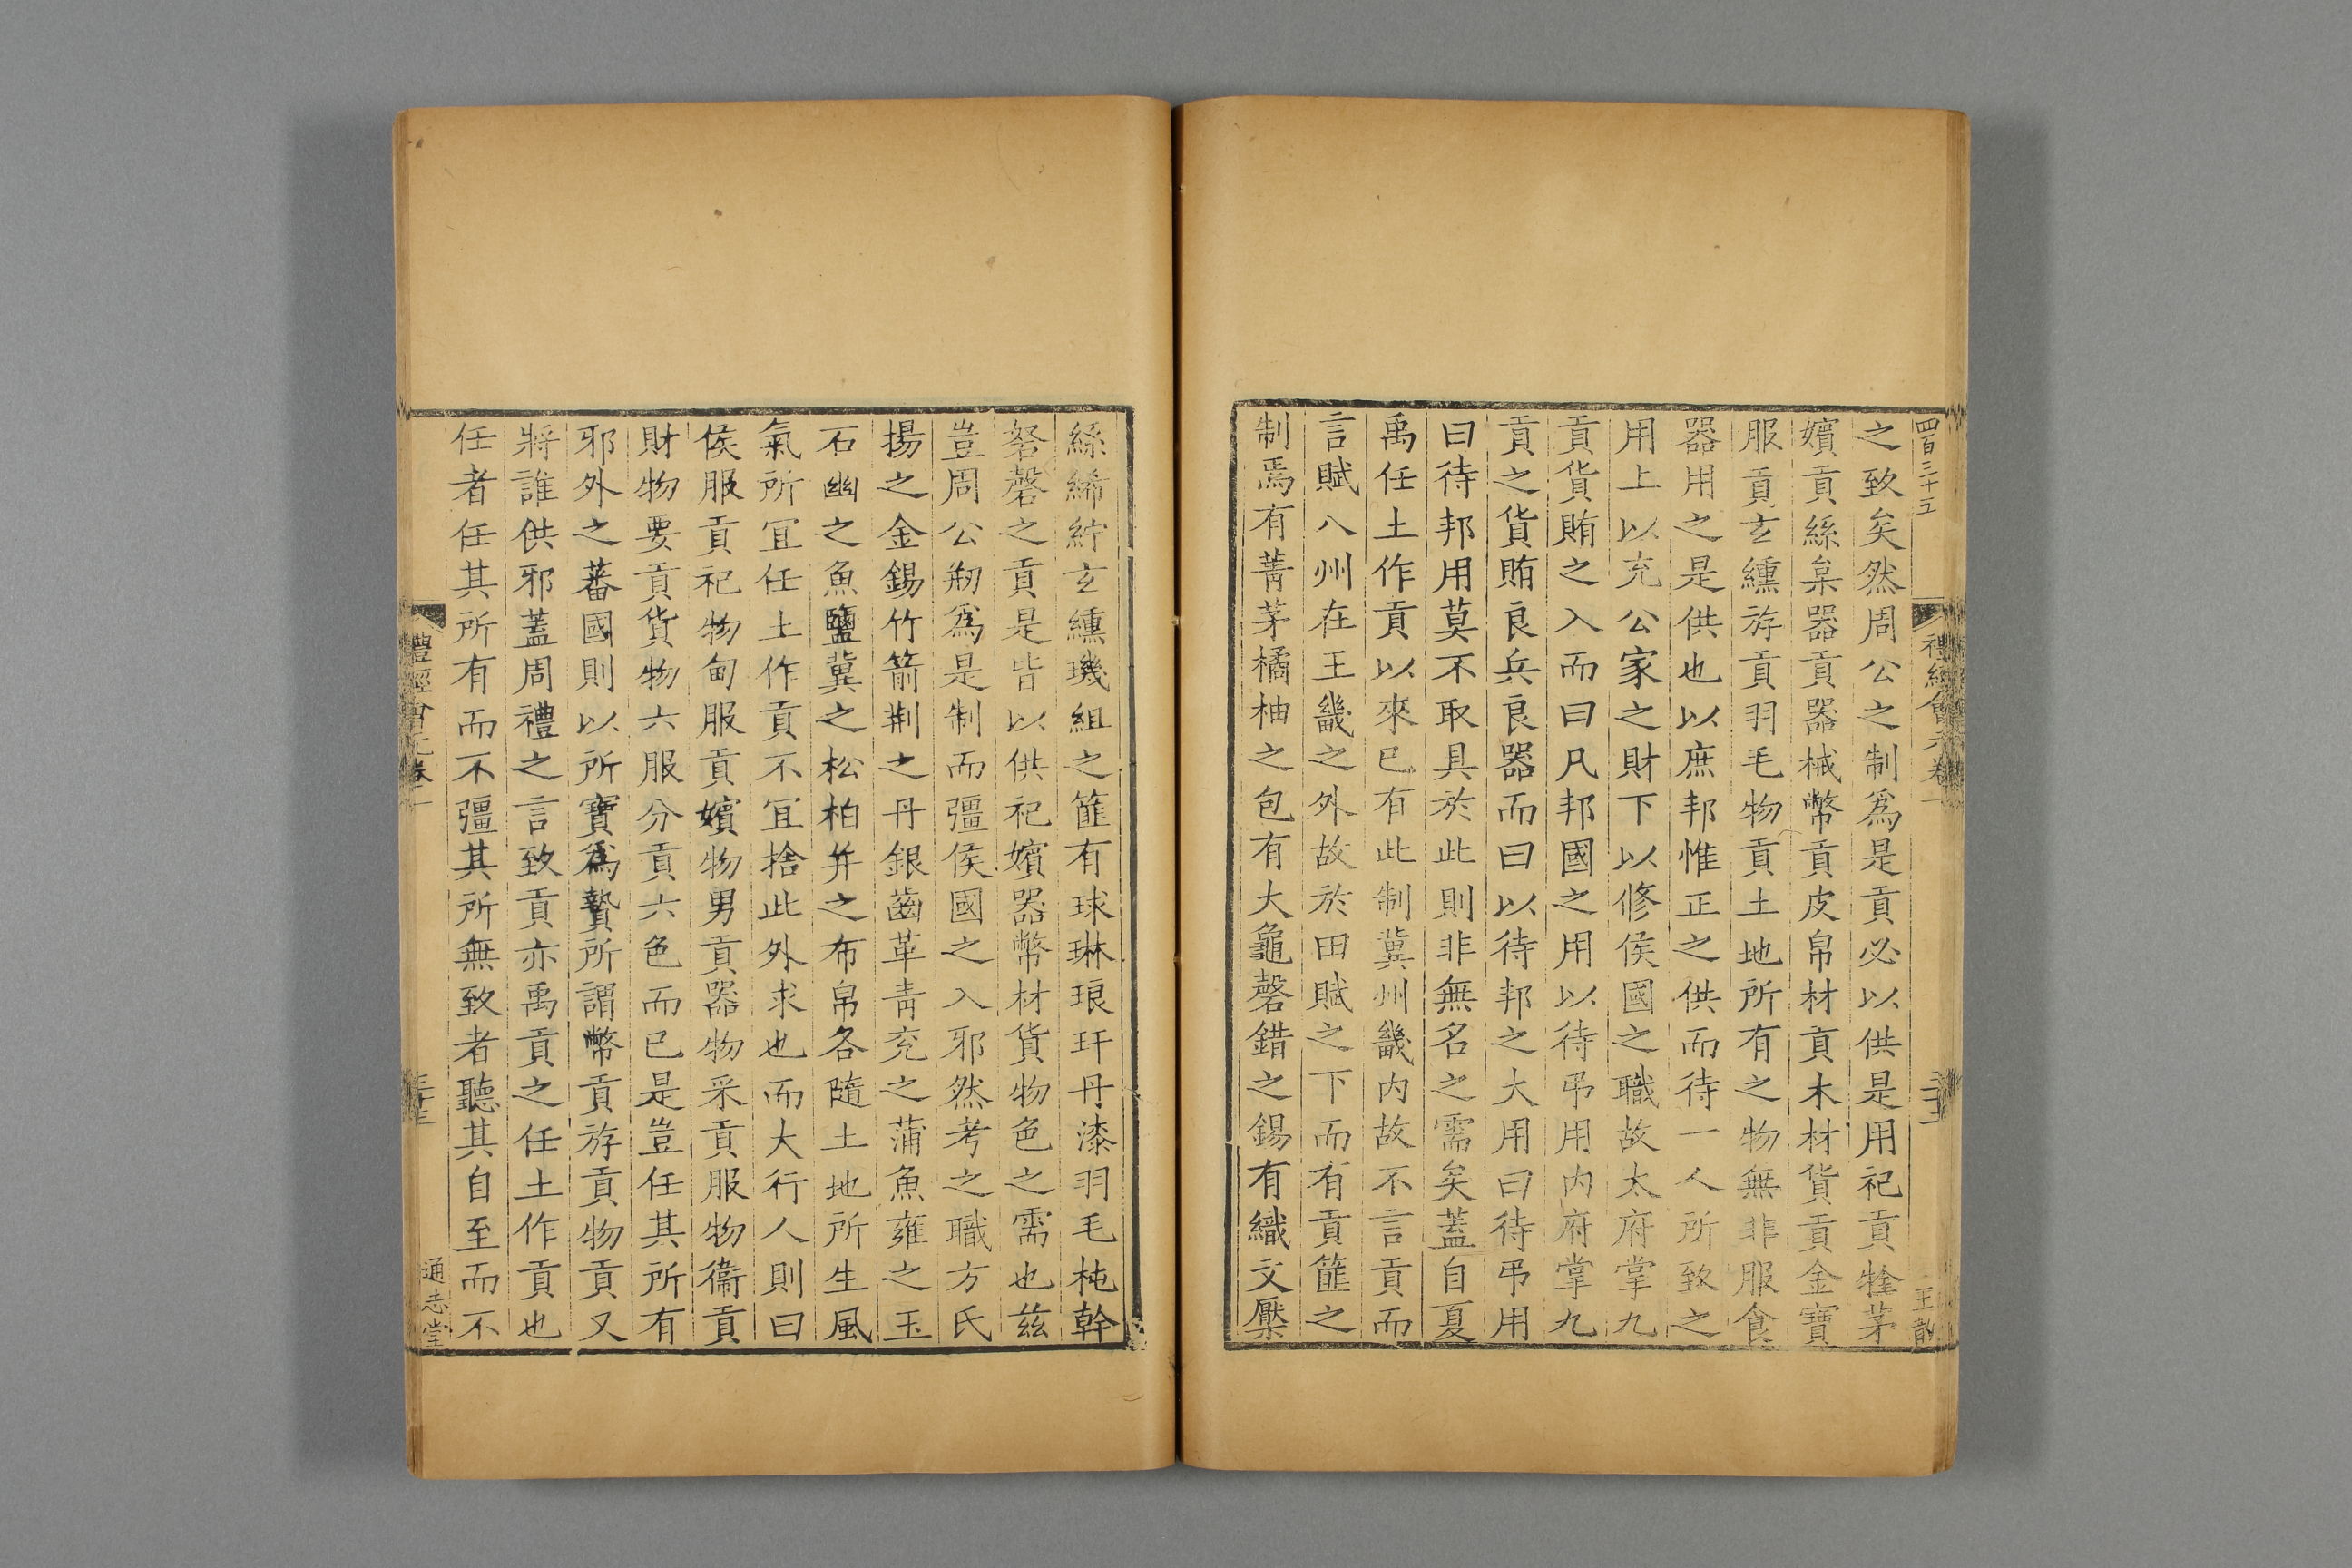 四百三十五
之致矣然周公之制爲是貢必以供是用祀貢牷茅
嬪貢絲枲器貢器械幣貢皮帛材貢木材貨貢金寶
服貢玄纁斿貢羽毛物貢土地所有之物無非服食
器用之是供也以庶邦惟正之供而待一人所致之
用上以充公家之財下以修侯國之職故太府掌九
貢貨賄之入而曰凡邦國之用以待弔用內府掌九
貢之貨賄良兵良器而曰以待邦之大用曰待弔用
曰待邦用莫不取具於此則非無名之需矣蓋自夏
禹任土作貢以來已有此制冀州畿內故不言貢而
言賦八州在王畿之外故於田賦之下而有貢篚之
制焉有菁茅橘柚之包有大龜磬錯之錫有織文檿
絲絺紵玄纁璣組之篚有球琳琅玕丹漆羽毛杶榦
砮磬之貢是皆以供祀嬪器幣材貨物色之需也兹
豈周公剏爲是制而彊侯國之入邪然考之職方氏
揚之金錫竹箭荆之丹銀齒革青兖之蒲魚雍之玉
石幽之魚鹽冀之松柏并之布帛各隨土地所生風
氣所宜任土作貢不宜捨此外求也而大行人則曰
侯服貢祀物甸服貢嬪物男貢器物采貢服物衞貢
財物要貢貨物六服分貢六色而已是豈任其所有
邪外之蕃國則以所寶爲贄所謂幣貢斿貢物貢又
將誰供邪蓋周禮之言致貢亦禹貢之任土作貢也
任者任其所有而不彊其所無致者聽其自至而不
禮經會元卷
通志堂